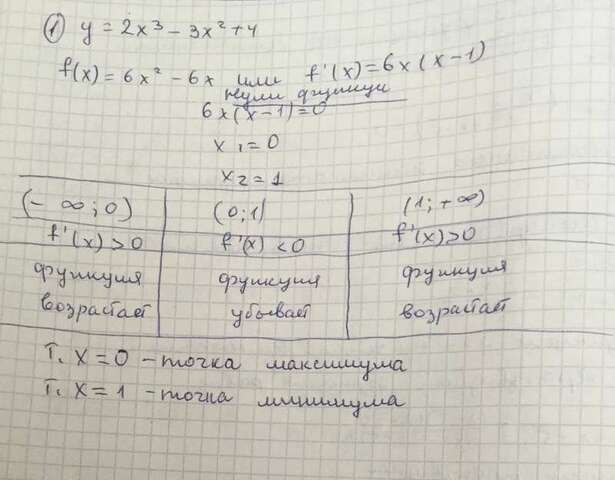 ① y = 2x³ - 3x² + 4
f(x) = 6x² - 6x или f'(x) = 6x(x-1)
нули функции
6x(x-1)=0
x₁=0
x₂=1
(-∞;0) (0;1) (1;+∞)
f'(x)>0 f'(x)<0 f'(x)>0
функция функция функция
возрастает убывает возрастает
Т. x=0 - точка максимума
Т. x=1 - точка минимума